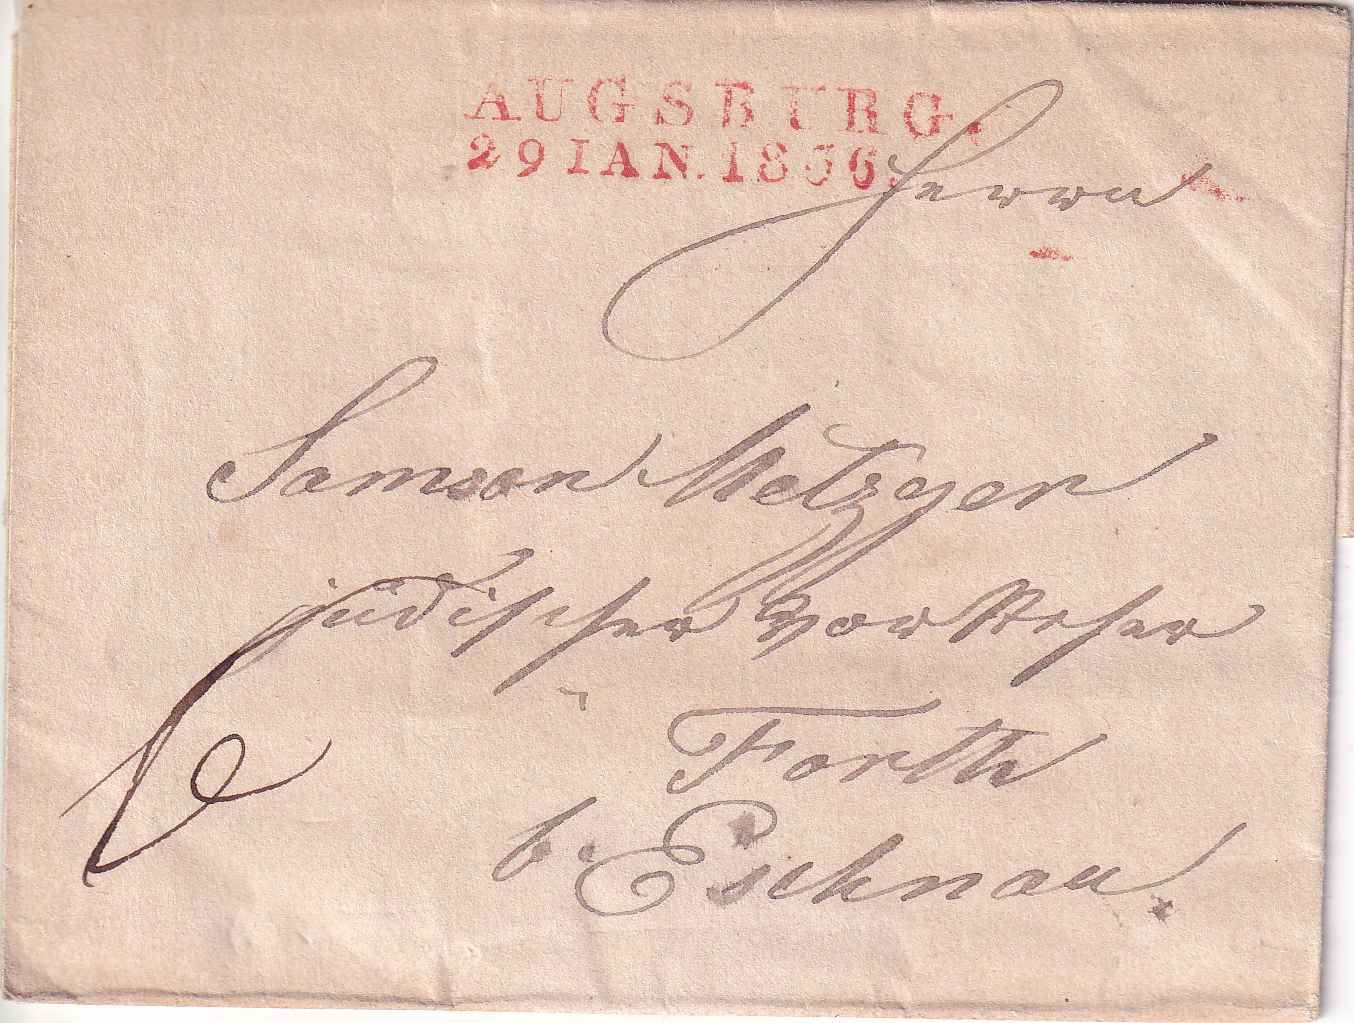 AUGSBURG.
29 IAN. 1836.
Herrn
Samson Metzger
jüdischer Vorsteher
6
Forth
b. Eschnau.